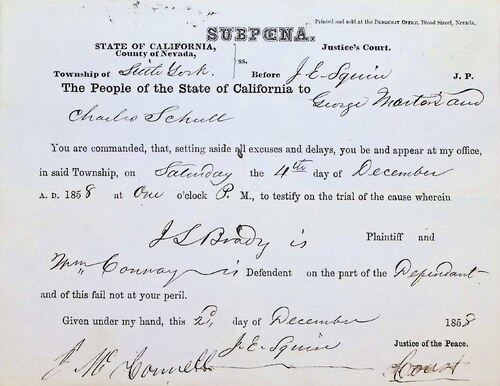 Printed and sold at the DEMOCRAT OFFICE, Broad Street, Nevada.
SUBPŒNA.
STATE OF CALIFORNIA, County of Nevada, ss. Justice's Court.
Township of Little York. Before J. E. Squire J. P.
The People of the State of California to George Martin and
Charles Schull
You are commanded, that, setting aside all excuses and delays, you be and appear at my office,
in said Township, on Saturday the 4th day of December
A. D. 1858 at One o'clock P. M., to testify on the trial of the cause wherein
J L Brady is Plaintiff and
Wm Conway is Defendent on the part of the Defendant
and of this fail not at your peril.
Given under my hand, this 2d, day of December 1858
J. E. Squire Justice of the Peace.
J. McConnell Const